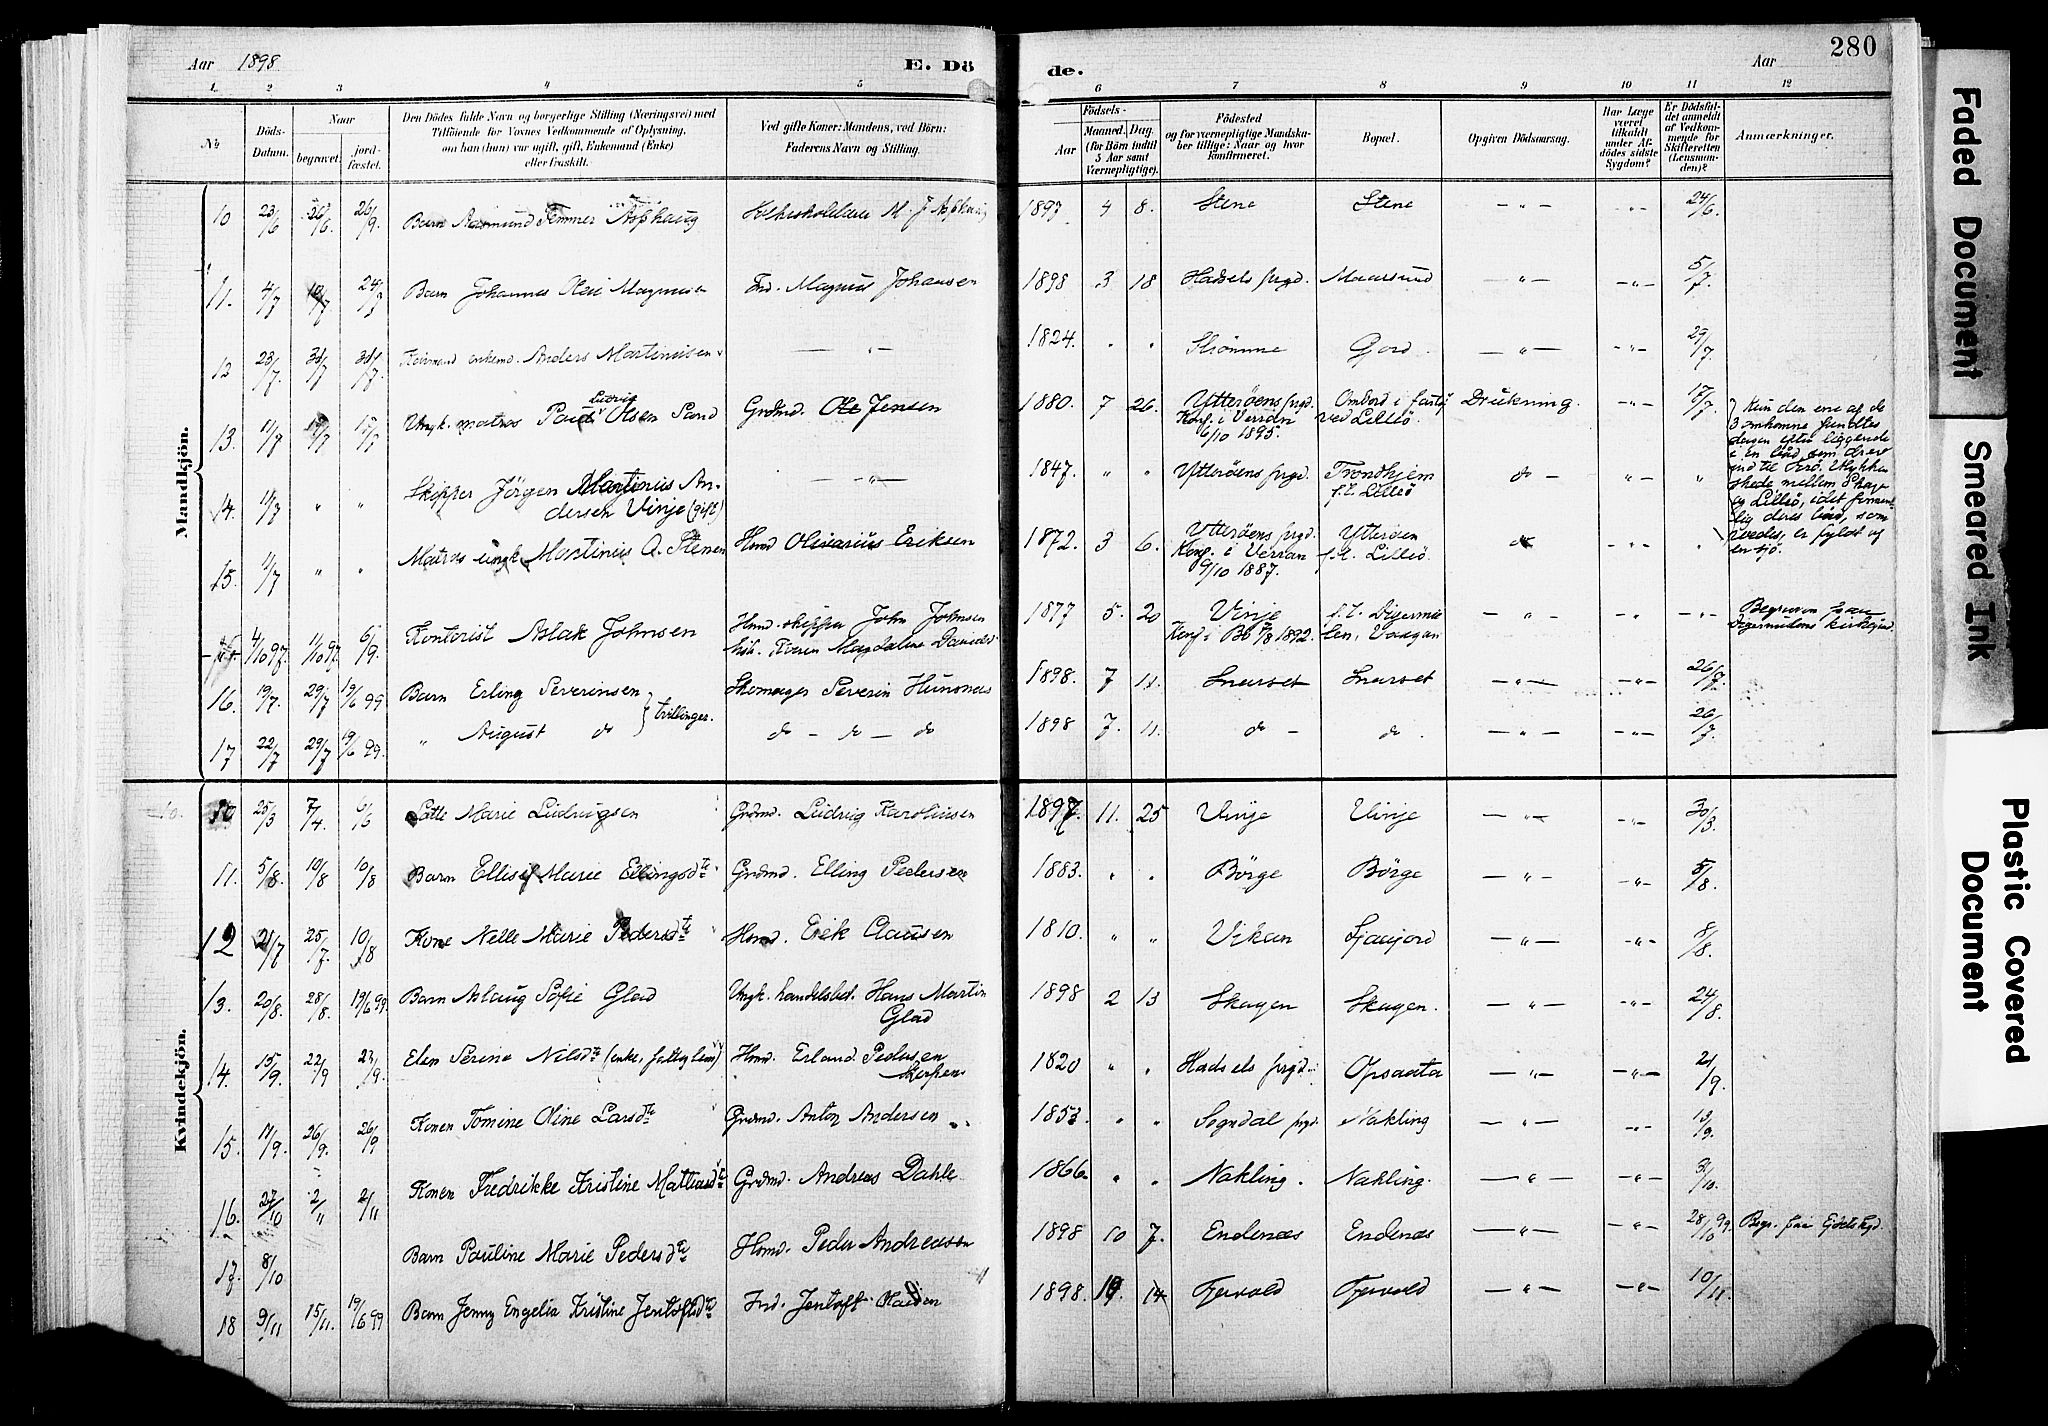 Aar 1898.
E. Dö
de.
Aar
280
1. 2 3 4 5 6 7 8 9 10 11 12
№
Döds-Datum.
Naar
begravet.
jord-fæstet.
Den Dödes fulde Navn og borgerlige Stilling (Næringsvei) med
Tilföiende for Voxnes Vedkommende af Oplysning,
om han (hun) var ugift, gift, Enkemand (Enke)
eller fraskilt.
Ved gifte Koner: Mandens, ved Börn:
Faderens Navn og Stilling.
Födsels-
Aar
Maaned. Dag.
(for Börn indtil
5 Aar samt
Værnepligtige).
Födested
og for værnepligtige Mandska-
ber tillige: Naar og hvor
konfirmeret.
Bopæl.
Opgiven Dödsaarsag.
Har Læge
været
tilkaldt
under Af-
dödes sidste
Sygdom?
Er Dödsfal-
det anmeldt
af Vedkom-
mende for
Skifteretten
(Lensman-
den)?
Anmærkninger.
Mandkjön.
10 23/6 26/6 26/9 Barn Aasmund Asphaug M. J Asphaug 1897 4 8. Stene Stene — " — - " - 24/6.
11. 4/7 10/7 24/7 Barn Johannes Olai Magnusen Ind. Magnus Johansen 1898 3 18 Hadsels prgd. Maarsund — " — - " - 5/7.
12 23/7. 31/7 31/7. enkemd. Anders Martinusen — " — 1824. " " Strömme Gjord. — " — - " - 29/7.
13. 11/7 17/7 17/7 Ungk. matros Paul Ludvig Olsen Sand Grdmd. Ole Jensen 1880. 7 26. Ytteröens prgd. Konf. i Verran 6/10 1895. Ombord i ved Lilleö. Drukning. - " - 17/7.
Kun den ene af de
3 omkomne fandtes
dagen efter liggende
i en båd, som drev
ind til
skede mellem Skage
og Lilleö, idet
lig deres båd, som
er fyldt af
en sjö.
14. 11/7 " " Skipper Jörgen Martinius An-
dersen Vinje (gift) — " — 1847. " " Ytteröens prgd. Trondhjem f. t. Lilleö do — - " - "
15. 11/7 " " Matros ungk. Martinius O. Stenen Hmd Olivarius Eriksen 1872. 3 6. Ytteröens prgd. Konf. i Verran 9/10 1887. Ytteröen f. t. Lilleö. do - " - "
4/10 97. 11/10 97. 6/9. Kontorist Aslak Johnsen Hmd. skipper John Johnsen
Karen Magdalena 1877 5. 20 Vinje Konf. i Bö /8 1892. f. t. Digermu-
len i Vaagan — " — - " - - " - Begraven paa Digermulens kirkegrd.
16. 19/7. 29/7 19/6 99 Barn Erling Severinsen } tvillinger. Skomager Severin Hunsnes 1898. 7 11. Snarset Snarset — " — - " - 26/7.
17 22/7 29/7 19/6 99. " August do do — do — do 1898 7. 11. do - do. — " — - " - 26/7.
Kvindekjön.
10. 25/3 7/4. 6/6 Lotte Marie Ludvigsen Grdmd. Ludvig Karolinsen 1897. 11. 25 Vinje Vinje — " — - " - 30/3.
11. 5/8. 10/8 10/8 Barn Ellisif Marie Ellingsdtr Grdmd. Elling Pedersen 1883. " " Börge Börge — " — - " - 5/8.
12 21/7 25/7. 10/8 Kone Nelle Marie Pedersdtr Hmd. Erik Clausen 1810. " " Vikan Sjaajord — " — - " - 8/8.
13. 20/8. 28/8. 19/6 99. Barn Aslaug Sofie Glad Ungk. handelsbet. Hans Martin
Glad 1898 2 13 Skagen Skagen. — " — - " - 24/8.
14. 15/9. 22/9 23/9. Elen Serine Nilsdtr (enke, fattiglem) Hmd. Erland Pedersen 1820 " " Hadsels prgd. Opsaata — " — - " - 21/9.
15. 14/9. 26/9. 26/9 Konen Tomine Oline Larsdtr Grdmd. Anton Andersen 1853. " " Sogndal prgd. Nakling — " — - " - 19/9.
16. 27/10 2/11 2/11 Konen Fredrikke Kristine Mattiasdtr Grdmd. Andreas Dahle 1866. " " Nakling. Nakling. — " — - " - 31/10.
17. 8/10 Barn Pauline Marie Pedersdtr Hmd. Peder Andreasen 1898 10 7. Endenæs Endenæs — " — - " - 28/10 99. Begr. paa
18 9/11 15/11. 19/6 99 Barn Jenny Engelia Kristine Jentoftsdtr Ind. Jentoft Olaisen 1898. 10. 14 Fjervold Fjervold — " — - " - 10/11.
Faded Document
Smeared Ink
Plastic Covered
Document